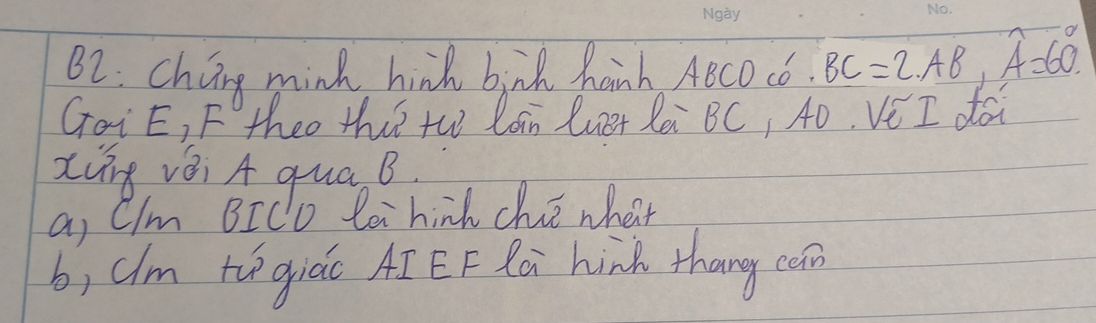 Ngày No.
B2: Chứng minh hình bình hành ABCD có BC = 2.AB, Â=60°.
Gọi E, F theo thứ tự lần lượt là BC, AD. Vẽ I đối
xứng với A qua B.
a, C/m BICD là hình chữ nhật
b, C/m tứ giác AIEF là hình thang cân